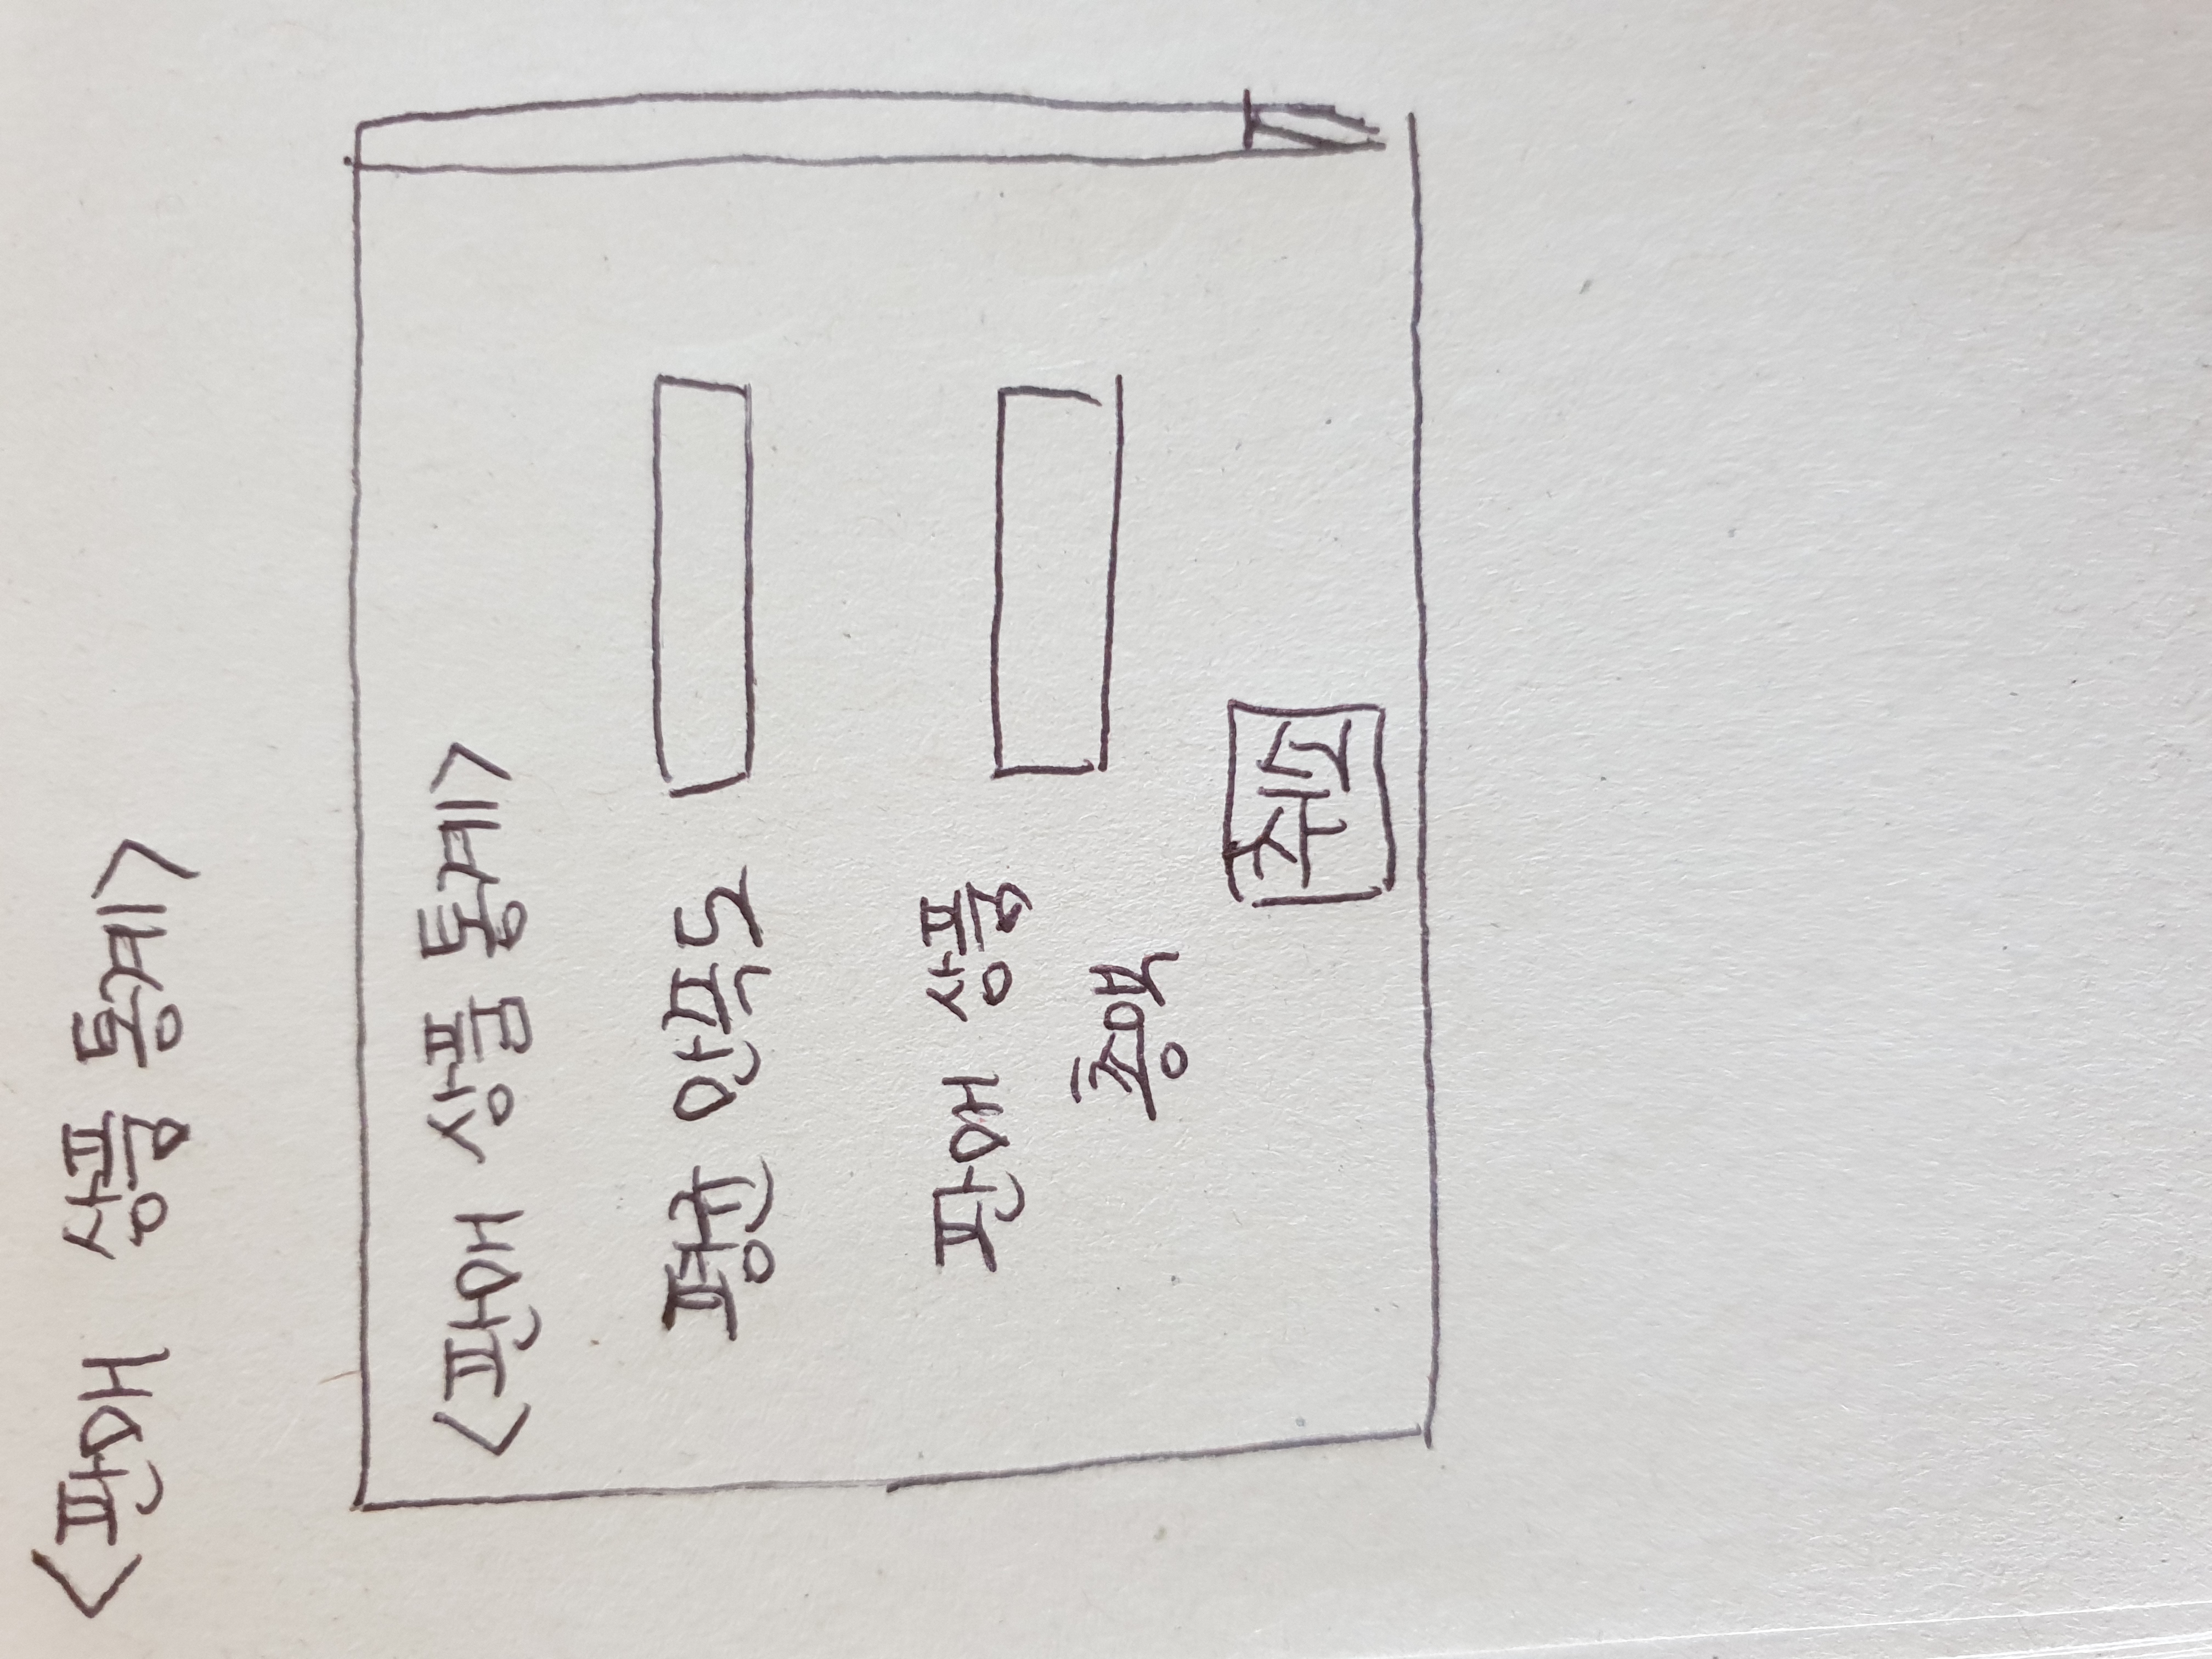 <판매 상품 통계>
<판매 상품 통계>
평균 만족도
판매 상품
총액
취소